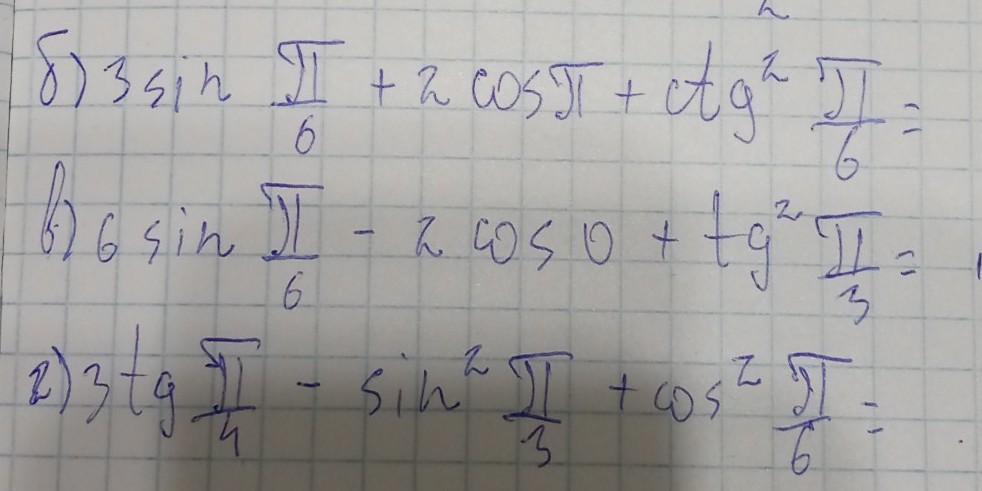 б) 3 sin π/6 + 2 cos π + ctg² π/6 =
в) 6 sin π/6 - 2 cos 0 + tg² π/3 =
г) 3 tg π/4 - sin² π/3 + cos² π/6 =